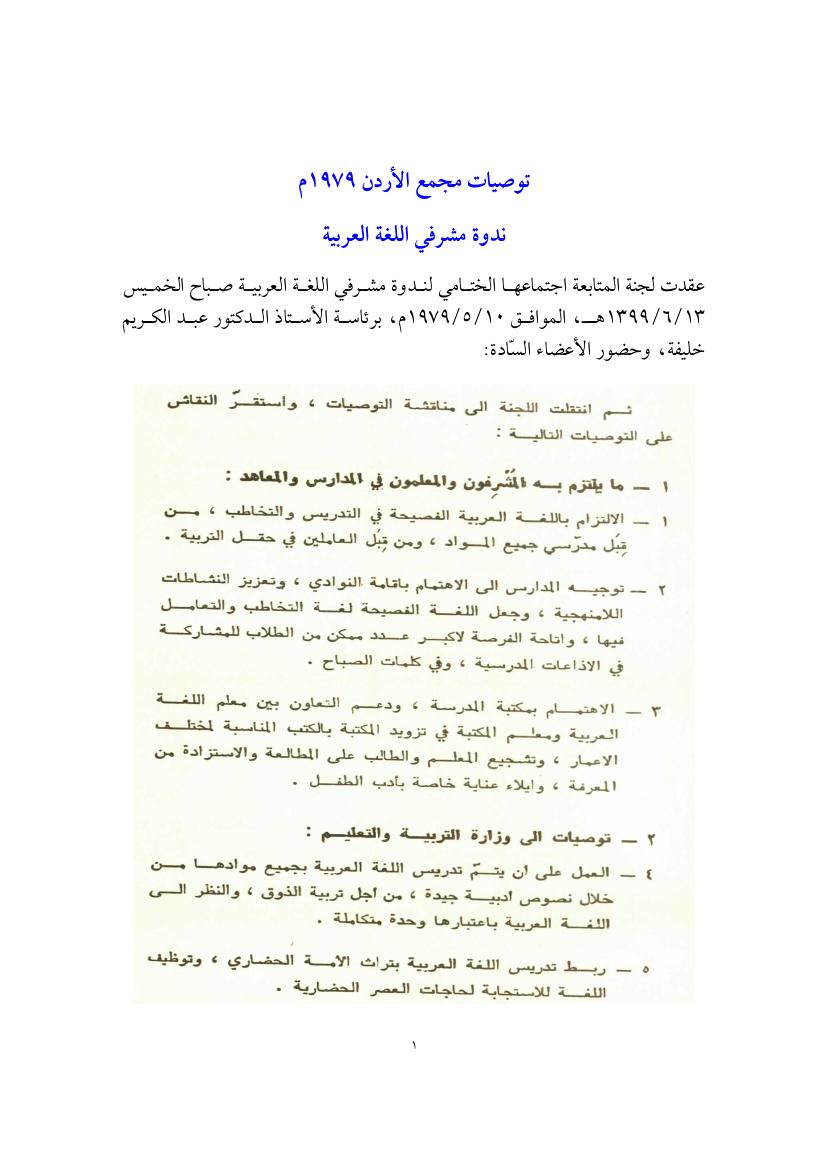 توصيات مجمع الأردن ١٩٧٩م
ندوة مشرفي اللغة العربية
عقدت لجنة المتابعة اجتماعها الختامي لندوة مشرفي اللغة العربية صباح الخميس
١٣٩٩/٦/١٣هـ، الموافق ١٩٧٩/٥/١٠م، برئاسة الأستاذ الدكتور عبد الكريم
خليفة، وحضور الأعضاء السّادة:
ثم انتقلت اللجنة الى مناقشة التوصيات ، واستقرّ النقاش
على التوصيات التالية :
١ – ما يلتزم به المُشْرِفون والمعلمون في المدارس والمعاهد :
١ – الالتزام باللغة العربية الفصيحة في التدريس والتخاطب ، من
قِبَل مدرّسي جميع المواد ، ومن قِبَل العاملين في حقل التربية .
٢ – توجيه المدارس الى الاهتمام باقامة النوادي ، وتعزيز النشاطات
اللامنهجية ، وجعل اللغة الفصيحة لغة التخاطب والتعامل
فيها ، واتاحة الفرصة لاكبر عدد ممكن من الطلاب للمشاركة
في الاذاعات المدرسية ، وفي كلمات الصباح .
٣ – الاهتمام بمكتبة المدرسة ، ودعم التعاون بين معلم اللغة
العربية ومعلم المكتبة في تزويد المكتبة بالكتب المناسبة لمختلف
الاعمار ، وتشجيع المعلم والطالب على المطالعة والاستزادة من
المعرفة ، وايلاء عناية خاصة بأدب الطفل .
٢ – توصيات الى وزارة التربية والتعليم :
٤ – العمل على ان يتمّ تدريس اللغة العربية بجميع موادها من
خلال نصوص ادبية جيدة ، من اجل تربية الذوق ، والنظر الى
اللغة العربية باعتبارها وحدة متكاملة .
٥ – ربط تدريس اللغة العربية بتراث الامة الحضاري ، وتوظيف
اللغة للاستجابة لحاجات العصر الحضارية .
١